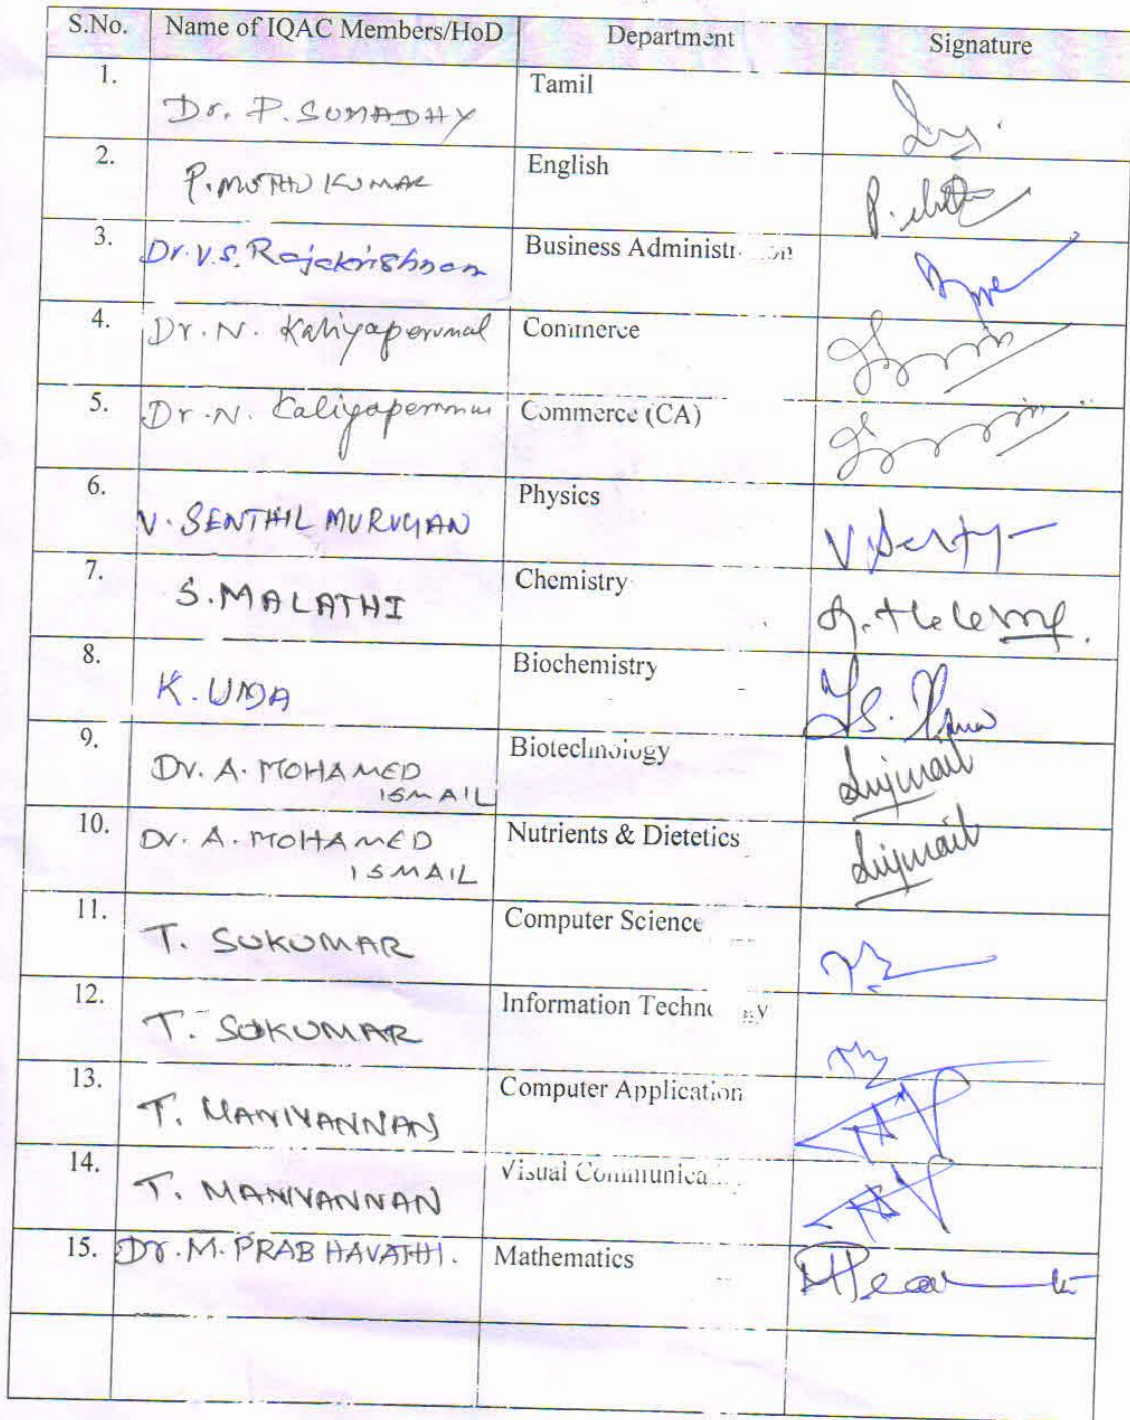 S.No. Name of IQAC Members/HoD Department Signature
1. Dr. P. SUMADHY Tamil
2. P. MUTHU KUMAR English
3. Dr. V.S. Rajakrishnan Business Administr on
4. Dr. N. Kaliyaperumal Commerce
5. Dr. N. Kaliyaperumal Commerce (CA)
6. V. SENTHIL MURUGAN Physics
7. S. MALATHI Chemistry
8. K. UMA Biochemistry
9. Dr. A. MOHAMED Biotechnology
ISMAIL
10. Dr. A. MOHAMED Nutrients & Dietetics
ISMAIL
11. T. SUKUMAR Computer Science
12. T. SUKUMAR Information Techno gy
13. T. MANIVANNAN Computer Application
14. T. MANIVANNAN Visual Communica
15. Dr. M. PRABHAVATHI. Mathematics